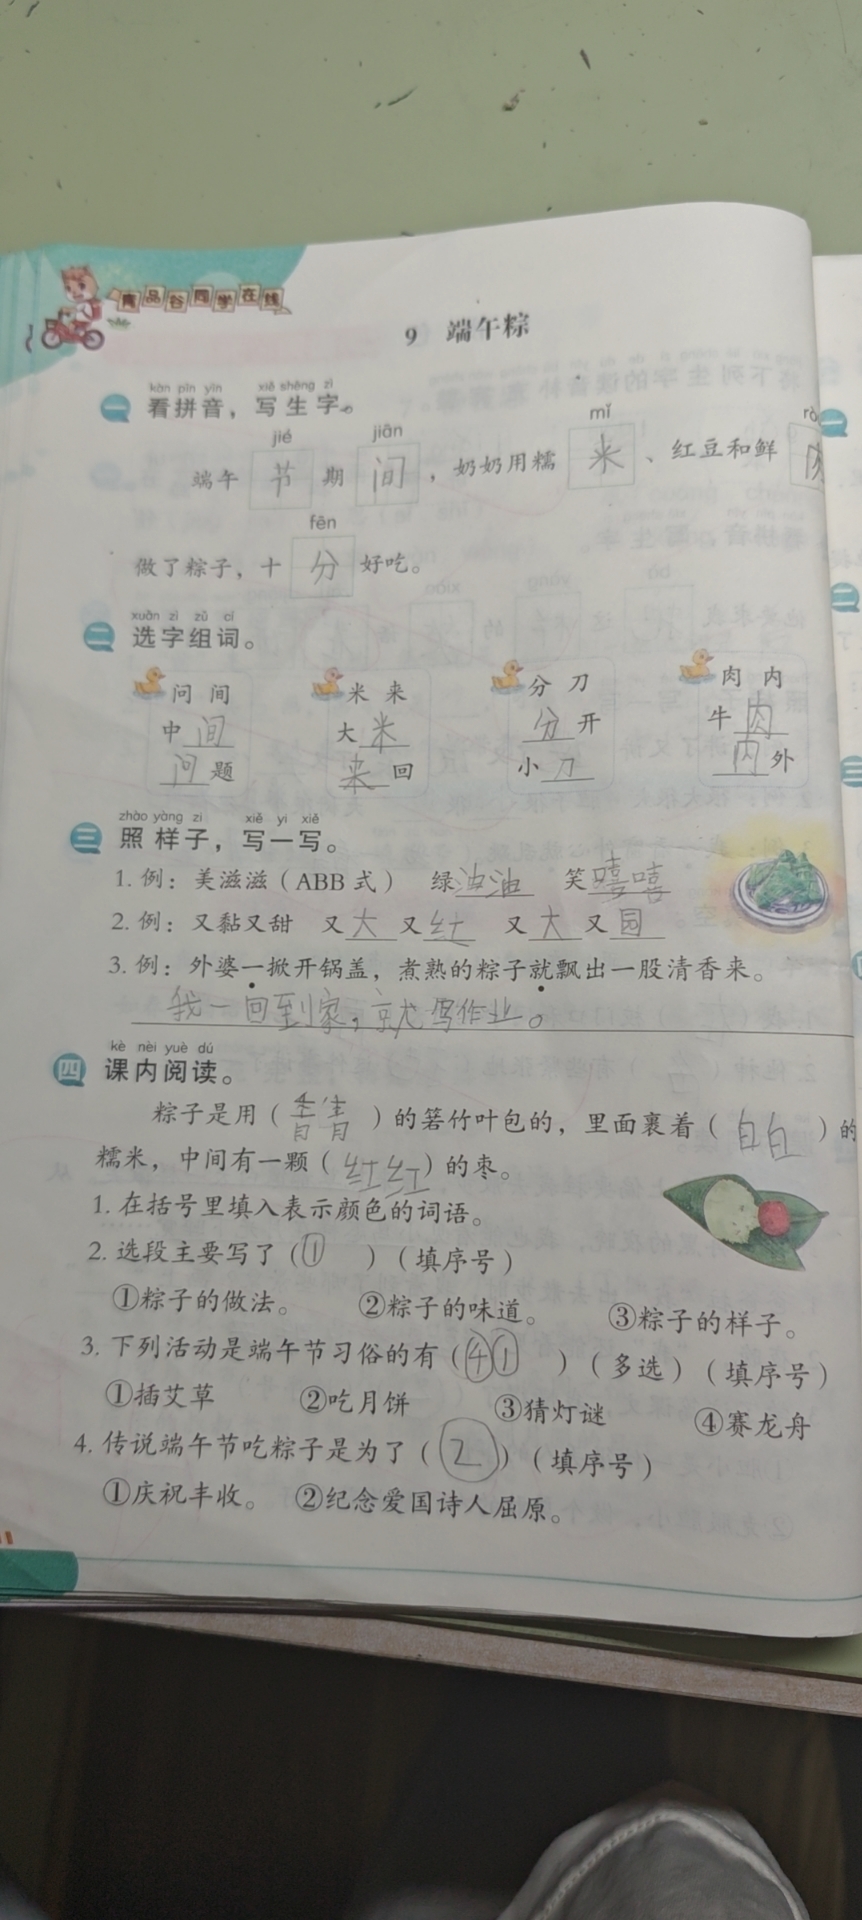 青品谷同学在线
9 端午粽
kàn pīn yīn xiě shēng zì
一 看拼音，写生字。
jié jiān mǐ
端午节期间，奶奶用糯米、红豆和鲜肉
fēn
做了粽子，十分好吃。
xuǎn zì zǔ cí
二 选字组词。
问 间 米 来 分 刀 肉 内
中间 大米 分开 牛肉
问题 来回 小刀 内外
zhào yàng zi xiě yi xiě
三 照样子，写一写。
1. 例：美滋滋（ABB式） 绿油油 笑嘻嘻
2. 例：又黏又甜 又大又红 又大又圆
3. 例：外婆一掀开锅盖，煮熟的粽子就飘出一股清香来。
我一回到家，就写作业。
kè nèi yuè dú
四 课内阅读。
粽子是用（青青）的箬竹叶包的，里面裹着（白白）的
糯米，中间有一颗（红红）的枣。
1. 在括号里填入表示颜色的词语。
2. 选段主要写了（①）（填序号）
①粽子的做法。 ②粽子的味道。 ③粽子的样子。
3. 下列活动是端午节习俗的有（④①）（多选）（填序号）
①插艾草 ②吃月饼 ③猜灯谜 ④赛龙舟
4. 传说端午节吃粽子是为了（②）（填序号）
①庆祝丰收。 ②纪念爱国诗人屈原。